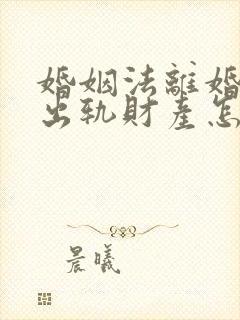 婚姻法離婚
出軌財產怎
晨曦